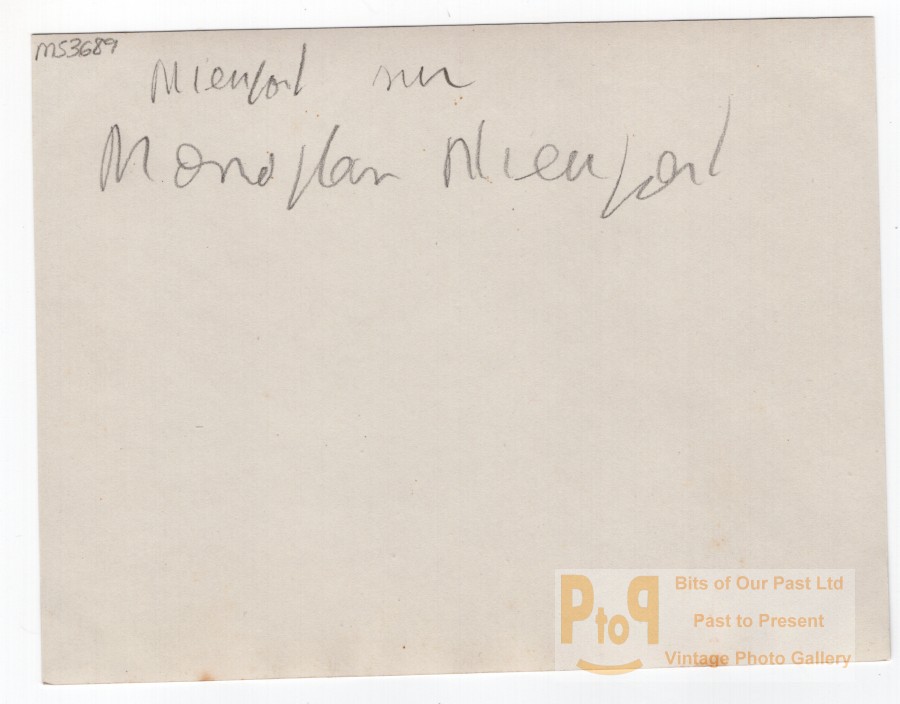 MS3689
Nieuport sur
Monoplan Nieuport
PtoP
Bits of Our Past Ltd
Past to Present
Vintage Photo Gallery